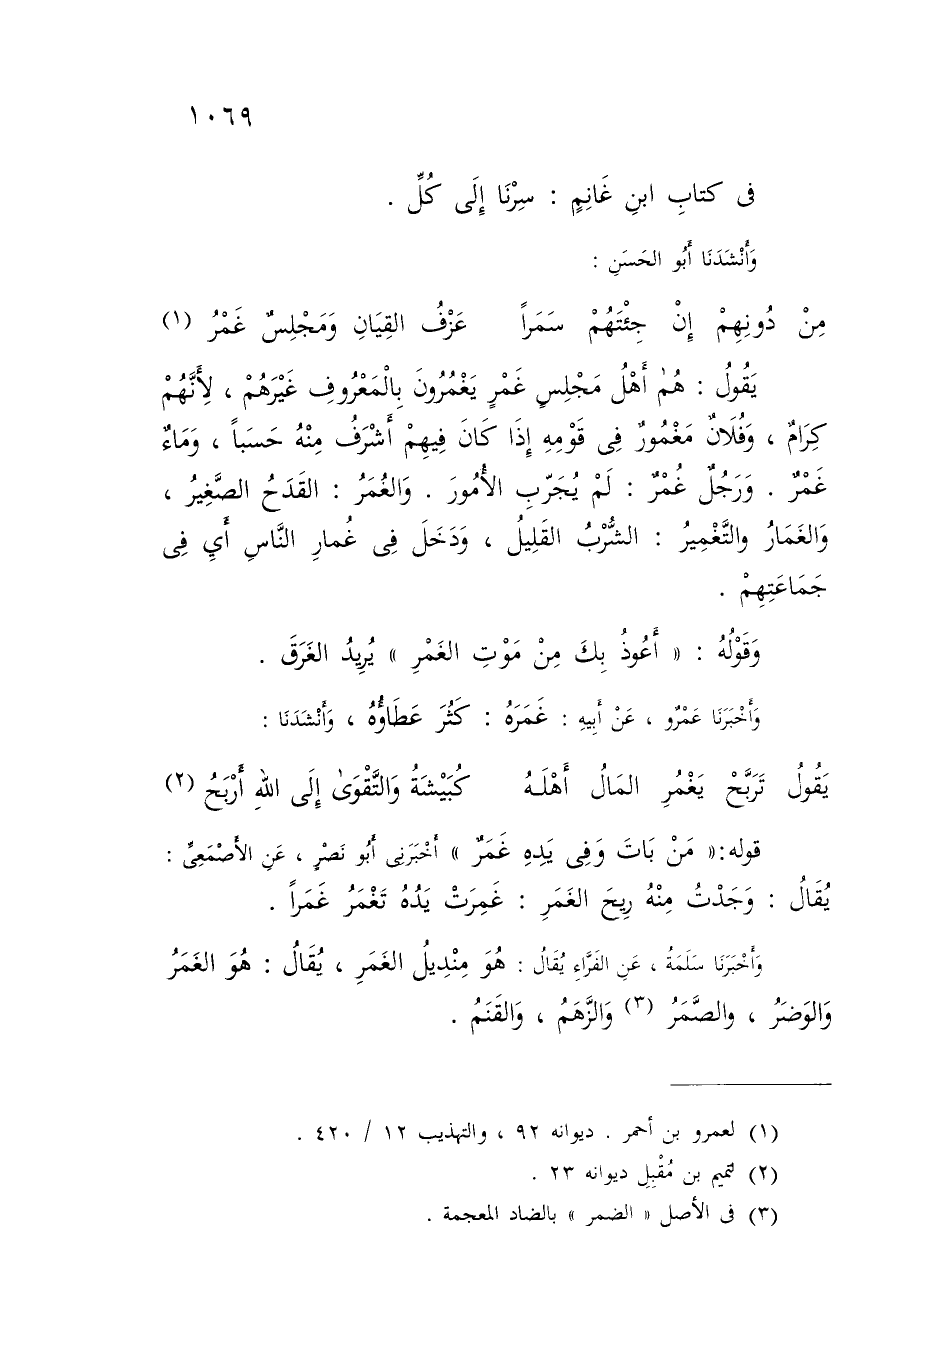 ١٠٦٩
فى كتابِ ابنِ غَانِمٍ : سِرْنَا إِلَى كُلِّ .
وَأَنْشَدَنَا أَبُو الحَسَنِ :
مِنْ دُونِهِمْ إِنْ جِئْتَهُمْ سَمَراً عَزْفُ القِيَانِ وَمَجْلِسٌ غَمْرُ (١)
يَقُولُ : هُم أَهْلُ مَجْلِسٍ غَمْرٍ يَغْمُرُونَ بِالْمَعْرُوفِ غَيْرَهُمْ ، لِأَنَّهُمْ
كِرَامٌ ، وَفُلَانٌ مَغْمُورٌ فِى قَوْمِهِ إِذَا كَانَ فِيهِمْ أَشْرَفُ مِنْهُ حَسَباً ، وَمَاءٌ
غَمْرٌ . وَرَجُلٌ غُمْرٌ : لَمْ يُجَرِّبِ الأُمُورَ . وَالغُمَرُ : القَدَحُ الصَّغِيرُ ،
وَالغَمَارُ والتَّغْمِيرُ : الشُّرْبُ القَلِيلُ ، وَدَخَلَ فِى غُمارِ النَّاسِ أَىِ فِى
جَمَاعَتِهِمْ .
وَقَوْلُهُ : « أَعُوذُ بِكَ مِنْ مَوْتِ الغَمْرِ » يُرِيدُ الغَرَقَ .
وَأَخْبَرَنَا عَمْرٌو ، عَنْ أَبِيهِ : غَمَرَهُ : كَثُرَ عَطَاؤُهُ ، وَأَنْشَدَنَا :
يَقُولُ تَرَبَّحْ يَغْمُرِ المَالُ أَهْلَهُ كُبَيْشَةُ وَالتَّقْوَىٰ إِلَى اللهِ أَرْبَحُ (٢)
قوله: « مَنْ بَاتَ وَفِى يَدِهِ غَمَرٌ » أَخْبَرَنِى أَبُو نَصْرٍ ، عَنِ الأَصْمَعِىِّ :
يُقَالُ : وَجَدْتُ مِنْهُ رِيحَ الغَمَرِ : غَمِرَتْ يَدُهُ تَغْمَرُ غَمَراً .
وَأَخْبَرَنَا سَلَمَةُ ، عَنِ الفَرَّاءِ يُقَالُ : هُوَ مِنْدِيلُ الغَمَرِ ، يُقَالُ : هُوَ الغَمَرُ
وَالوَضَرُ ، والصَّمَرُ (٣) وَالزَّهَمُ ، وَالقَنَمُ .
(١) لعمرو بن أحمر . ديوانه ٩٢ ، والتهذيب ١٢ / ٤٢٠ .
(٢) لتميم بن مُقْبِلِ ديوانه ٢٣ .
(٣) فى الأصل « الضمر » بالضاد المعجمة .